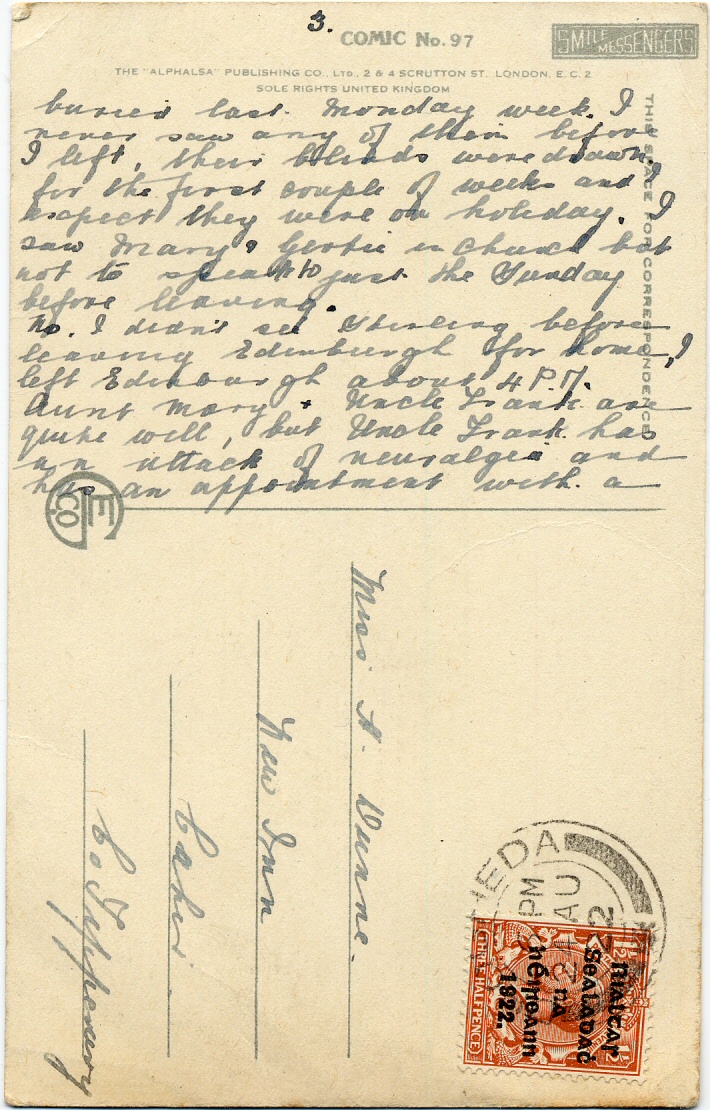 3.
COMIC No. 97
SMILE MESSENGERS
THE "ALPHALSA" PUBLISHING CO., LTD., 2 & 4 SCRUTTON ST. LONDON, E.C. 2
SOLE RIGHTS UNITED KINGDOM
THIS SPACE FOR CORRESPONDENCE
buried last Monday week. I
never saw any of them before
I left, their blinds were drawn
for the first couple of weeks and I
expect they were on holiday. I
saw Mary & Gertie in church but
not to speak to just the Sunday
before leaving.
No. I didn't see Stirling before
leaving Edinburgh for home, I
left Edinburgh about 4 P.M.
Aunt Mary + Uncle Frank are
quite well, but Uncle Frank has
an attack of neuralgia and
has an appointment with a
E CO
Miss A. Dunne.
New Inn
Cahir.
Co Tipperary
HEDA
PM
AU
22
Rialtar
Sealadać
na
hÉireann
1922.
THREE HALFPENCE